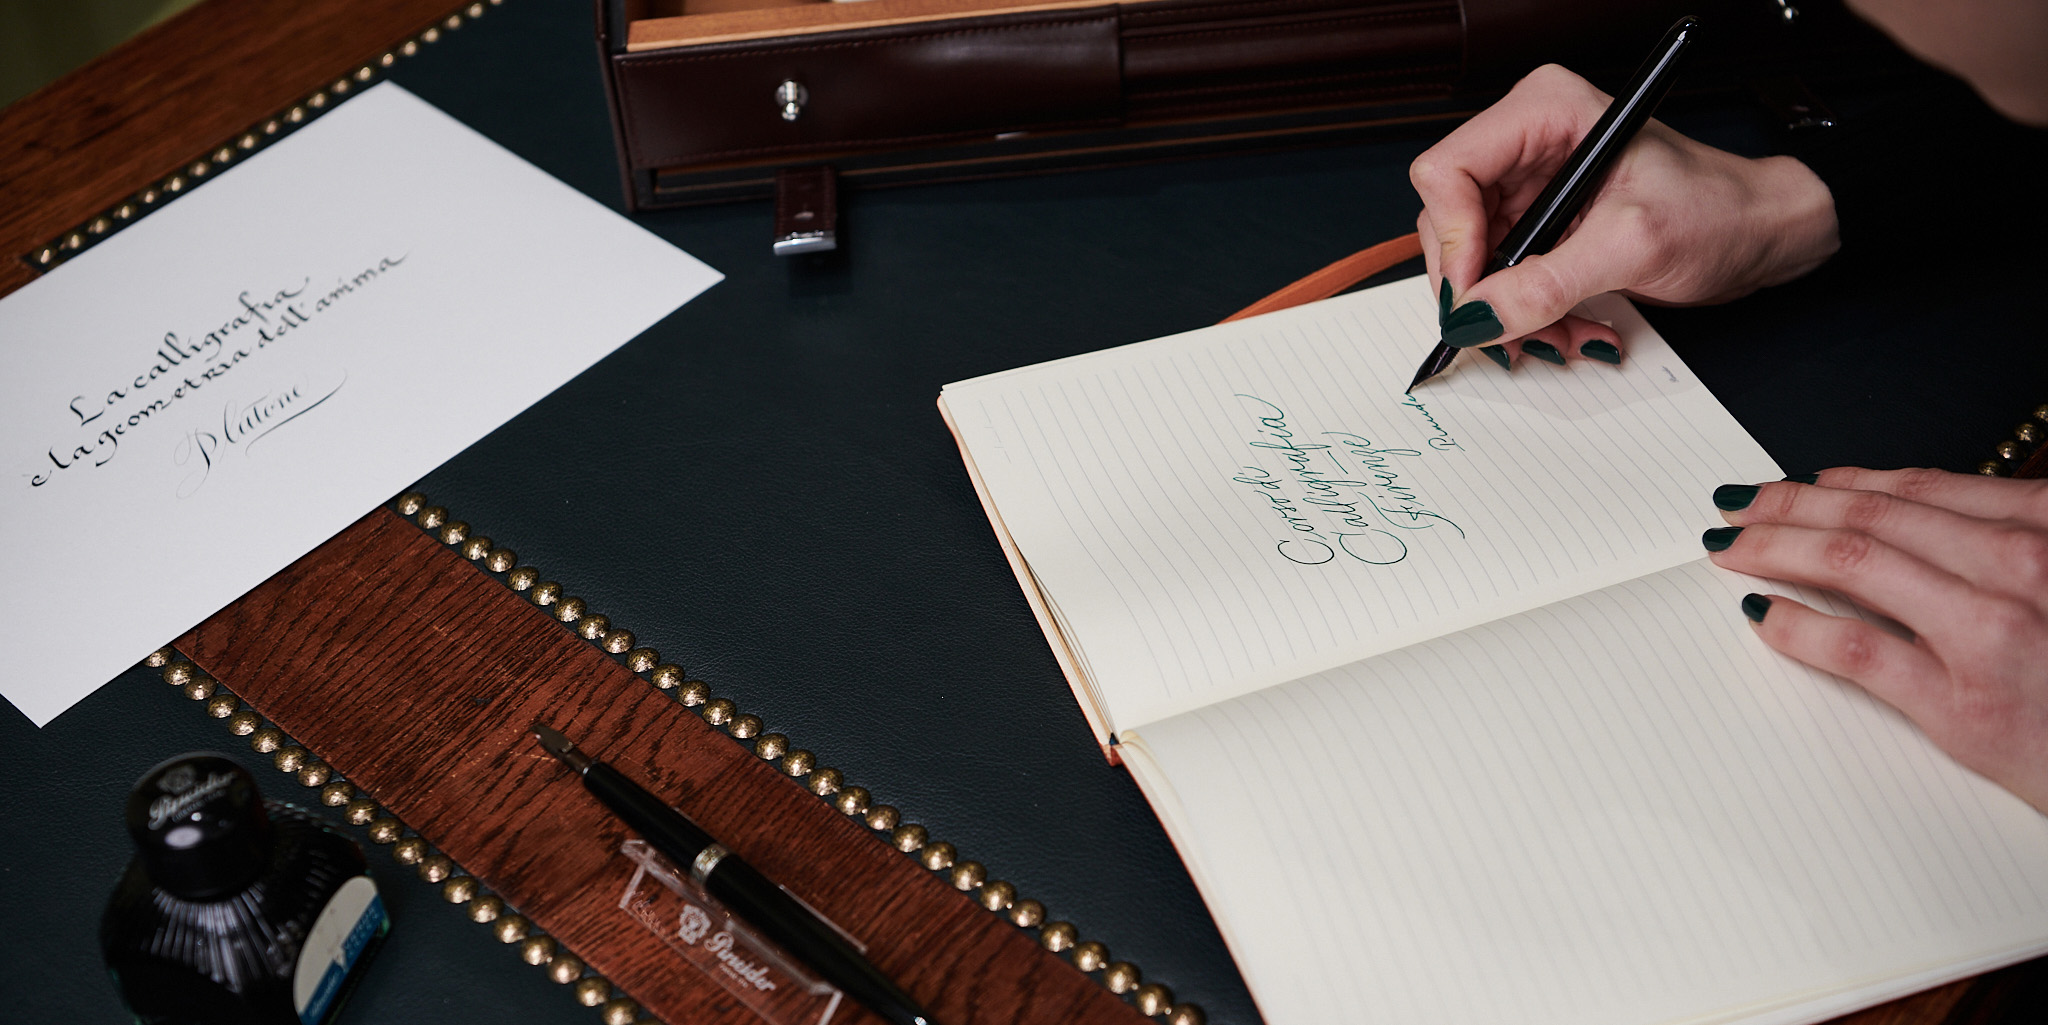 La calligrafia
è la geometria dell'anima
Platone
Corso di
Calligrafia
Firenze
Pineider
Pineider